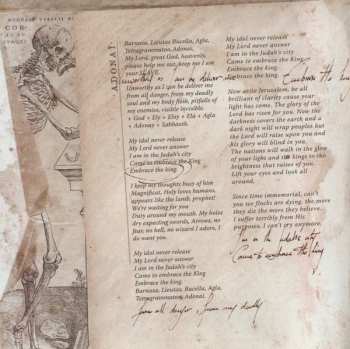 COR-
ADONAI
Baruasa, Lieutas Bucella, Agla,
Tetragrammaton, Adonai,
My Lord, great God, heavenly,
please help me out, keep me I am
your SLAVE.
Unworthy as I am be deliver me
from all danger, from my deadly
soul and my body flesh, pitfalls of
my enemies, visible invisible.
+ God + Ely + Eloy + Ela + Agla
+ Adonay + Sabbaoth.
My idol never release
My Lord never answer
I am in the Judah's city
Came to embrace the King
Embrace the king.
I keep my thoughts busy of him
Magnificat, Holy loves humans,
appears like the lamb, prophet!
We're waiting for you
Duty around my mouth. My holes
dry expecting swords, Arrows, no
fear, no hell, no wizard I adore, I
do want you.
My idol never release
My Lord never answer
I am in the Judah's city
Came to embrace the King
Embrace the king.
Baruasa, Lieutas, Bucella, Agla,
Tetragrammaton, Adonai.
from all danger, from my deadly
My idol never release
My Lord never answer
I am in the Judah's city
Came to embrace the King
Embrace the king.
Embrace the king.
as I am be deliver me
Embrace the
Now arise Jerusalem, be all
brilliant of clarity cause your
light has come. The glory of the
Lord has risen for you. Now the
darkness covers the earth and a
dark night will wrap peoples but
the Lord will raise upon you and
his glory will blind in you.
The nations will walk in the glow
of your light and the kings in the
brightness that raises of you.
Lift your eyes and look all
around.
Since time immemorial, can't
you see finals are dying, the more
they die the more they believe...
I suffer terribly from His
purposes, I can't cry anymore.
I'm in the judah's city
Came to embrace the king